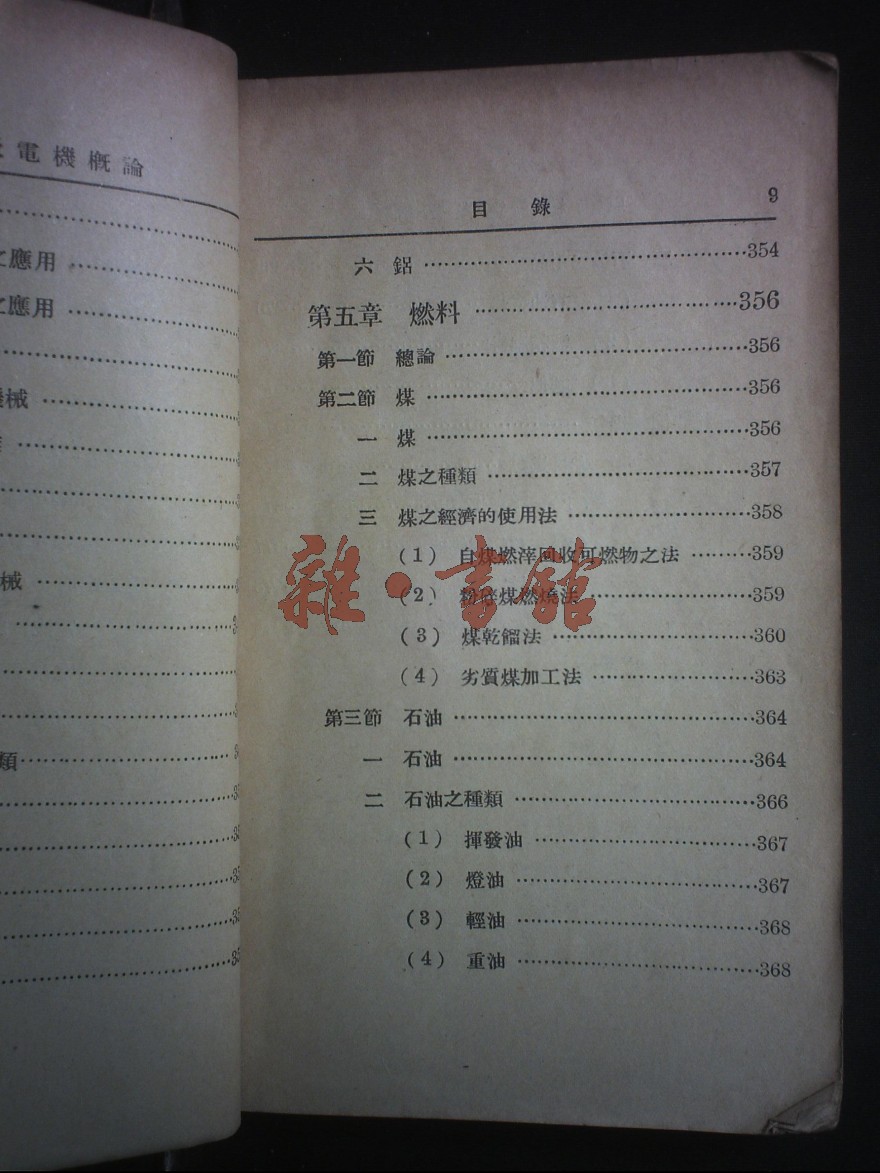 電機概論
之應用
之應用
機械
械
類
目錄 9
六 鋁 354
第五章 燃料 356
第一節 總論 356
第二節 煤 356
一 煤 356
二 煤之種類 357
三 煤之經濟的使用法 358
(1) 自煤燃滓回收可燃物之法 359
(2) 粉碎煤燃燒法 359
(3) 煤乾餾法 360
(4) 劣質煤加工法 363
第三節 石油 364
一 石油 364
二 石油之種類 366
(1) 揮發油 367
(2) 燈油 367
(3) 輕油 368
(4) 重油 368
雜·書館